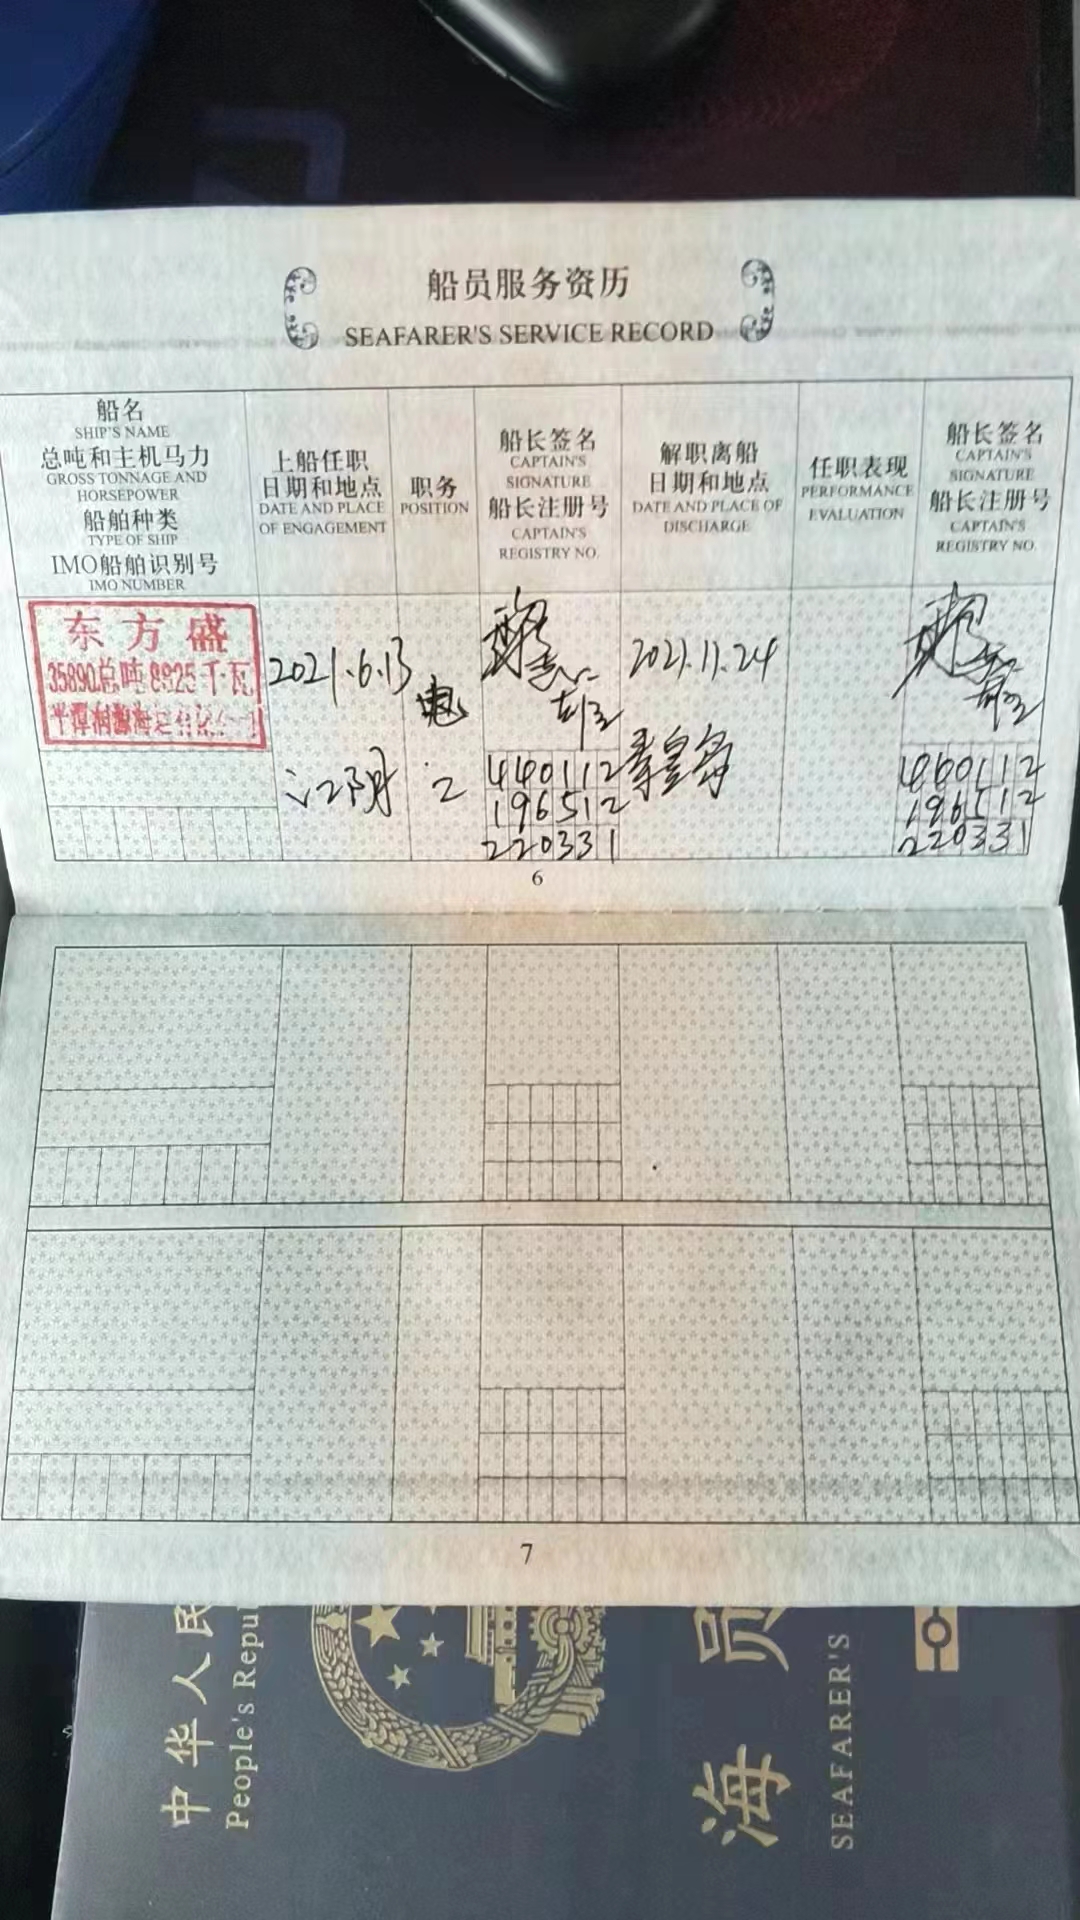 船员服务资历
SEAFARER'S SERVICE RECORD
船名
SHIP'S NAME
总吨和主机马力
GROSS TONNAGE AND
HORSEPOWER
船舶种类
TYPE OF SHIP
IMO船舶识别号
IMO NUMBER
上船任职
日期和地点
DATE AND PLACE
OF ENGAGEMENT
职务
POSITION
船长签名
CAPTAIN'S
SIGNATURE
船长注册号
CAPTAIN'S
REGISTRY NO.
解职离船
日期和地点
DATE AND PLACE OF
DISCHARGE
任职表现
PERFORMANCE
EVALUATION
船长签名
CAPTAIN'S
SIGNATURE
船长注册号
CAPTAIN'S
REGISTRY NO.
东方盛
35890总吨 8825千瓦
平潭
2021.6.13
江阴
电
工
440112
196512
220331
2021.11.24
秦皇岛
440112
196512
220331
6
7
中华人民
People's Repu
海员
SEAFARER'S